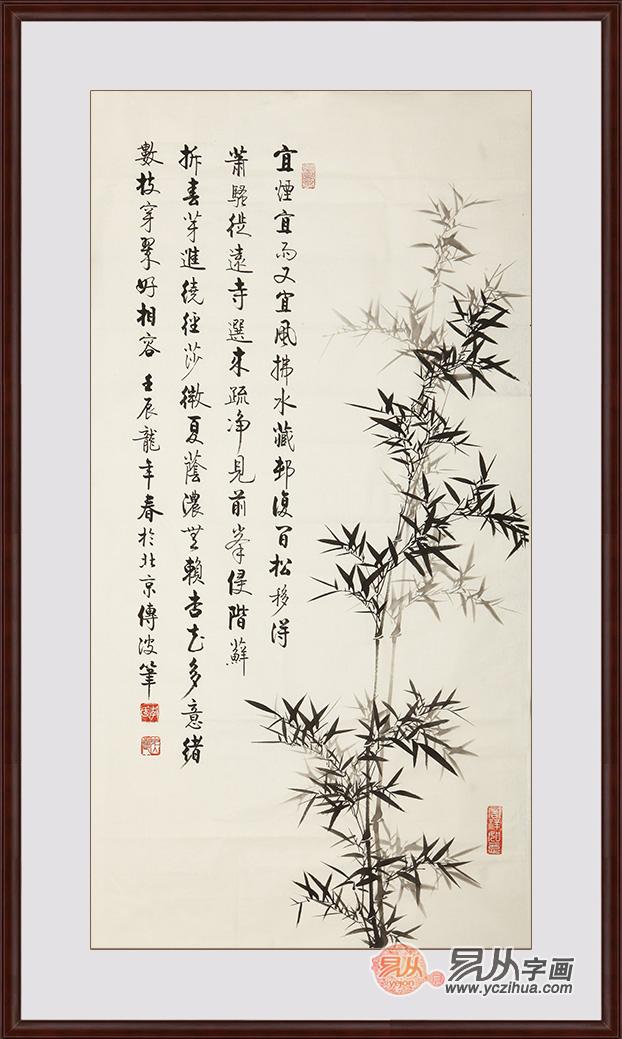 宜煙宜雨又宜風拂水藏邨復間松移得
蕭騷從遠寺選來疏淨見前峯侵階蘚
拆春芽迸繞徑莎微夏蔭濃無賴杏花多意緒
數枝穿翠好相容 壬辰龍年春於北京傳波筆
易从
yqjon
易从字画
www.yczihua.com